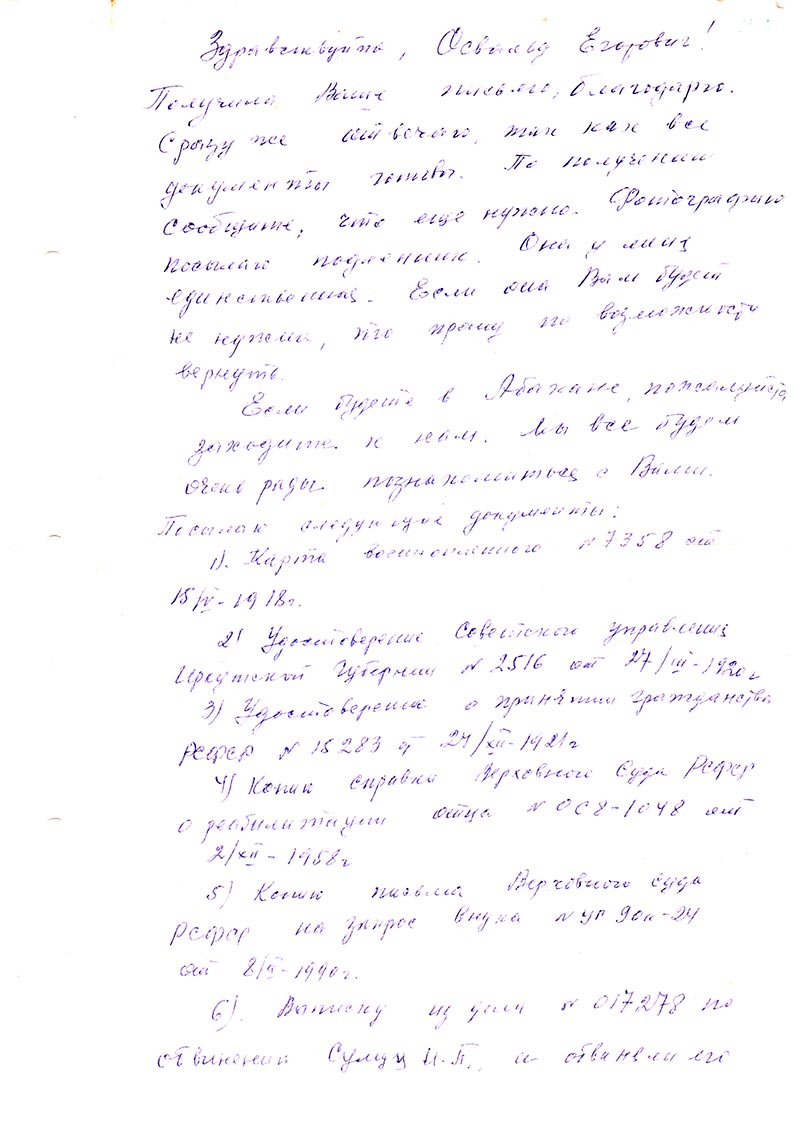 Здравствуйте, Освальд Егорович!
Получила Ваше письмо, благодарю.
Сразу же отвечаю, так как все
документы готовы. По получении
сообщите, что еще нужно. Фотографию
посылаю подлинник. Она у меня
единственная. Если она Вам будет
не нужна, то прошу по возможности
вернуть.
Если будете в Абакане, пожалуйста
заходите к нам. Мы все будем
очень рады познакомиться с Вами.
Посылаю следующие документы:
1). Карта военнопленного N 7358 от
15/IV-1918г.
2) Удостоверение Советского управления
Иркутской Губернии N 2516 от 27/III-1920г
3) Удостоверение о принятии гражданства
РСФСР N 15283 от 24/XII-1921г
4) Копию справки Верховного Суда РСФСР
о реабилитации отца N ОС8-1048 от
2/XII-1958г
5) Копию письма Верховного суда
РСФСР на запрос внука N УП 90к-24
от 8/II-1990г.
6). Выписку из дела N 017278 по
обвинению И.П., а обвиняли его